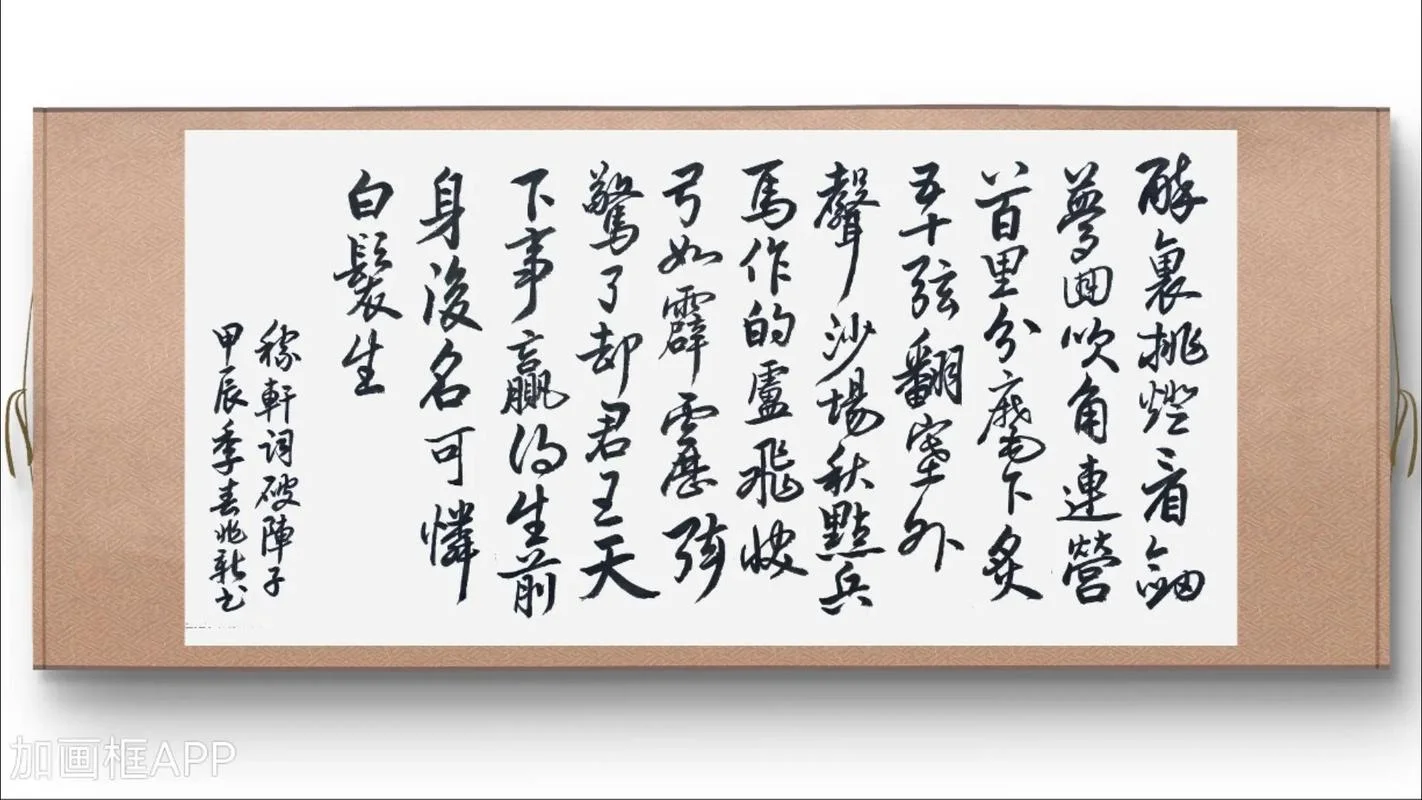 醉裏挑燈看劍
夢回吹角連營
八百里分麾下炙
五十弦翻塞外
聲沙場秋點兵
馬作的盧飛快
弓如霹靂弦
驚了却君王天
下事贏得生前
身後名可憐
白髮生
稼軒詞破陣子
甲辰季春兆新书
加画框APP